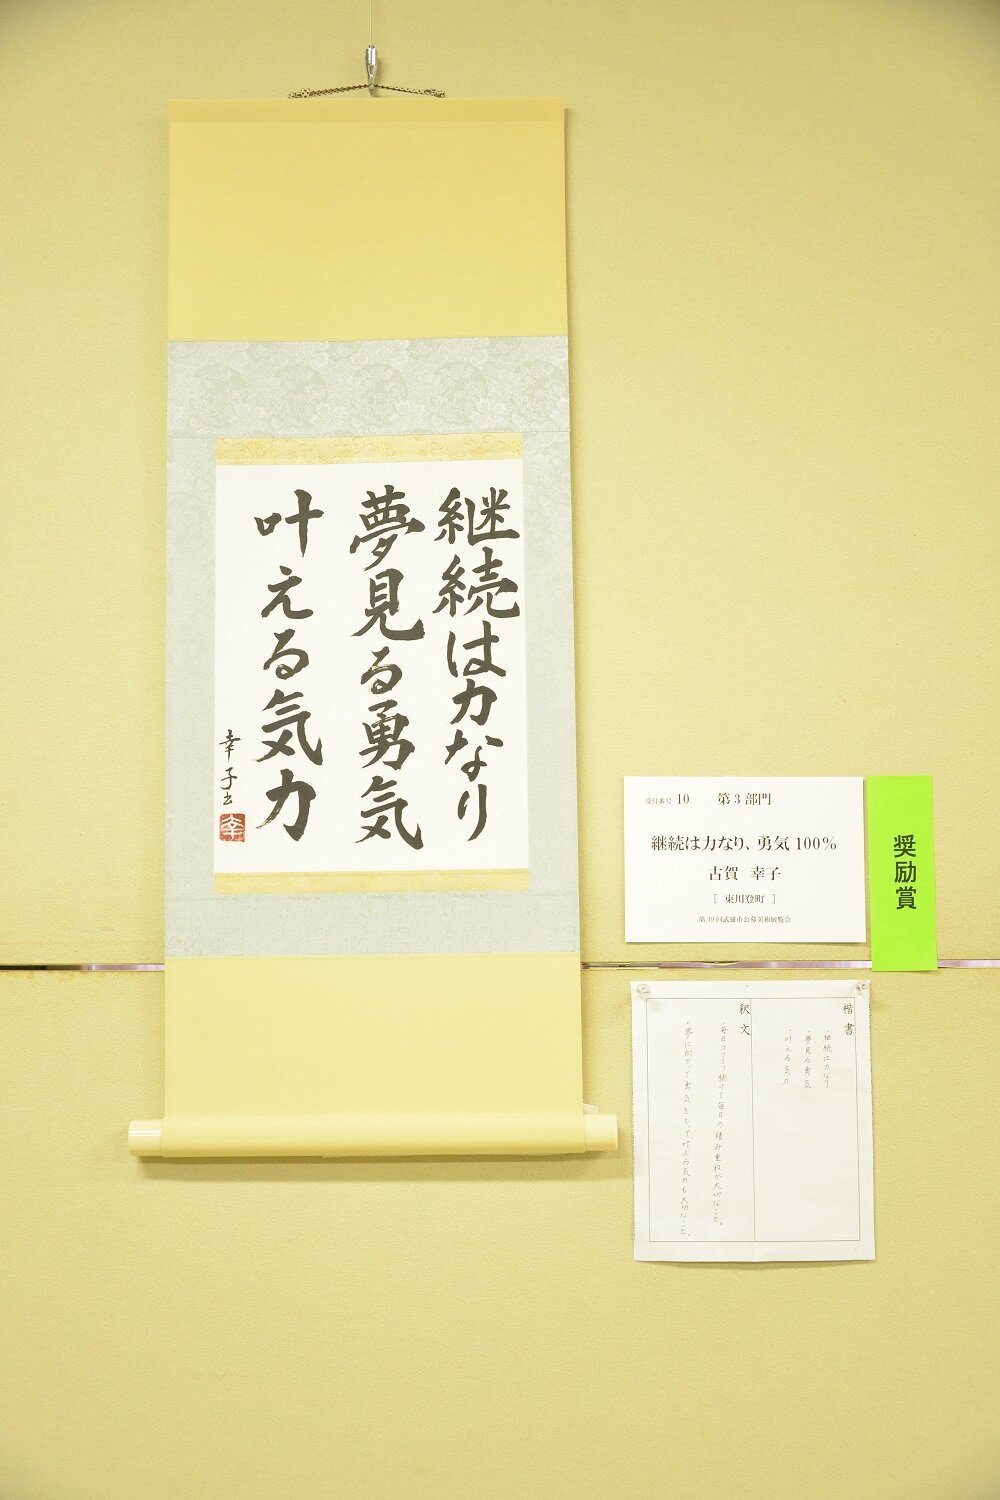 継続は力なり
夢見る勇気
叶える気力
幸子書
幸
受付番号 10 第3部門
継続は力なり、勇気100%
古賀 幸子
[ 東川登町 ]
第39回武雄市公募美術展覧会
奨励賞
楷書
・継続は力なり
・夢見る勇気
・叶える気力
釈文
・毎日コツコツ続けて毎日の積み重ねが大切なこと。
・夢に向かって勇気をもって叶える気力も大切なこと。